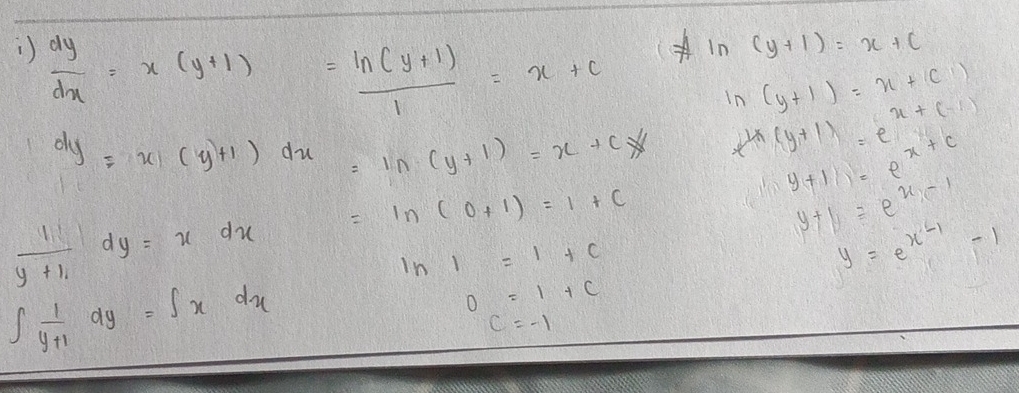 i) dy/dx = x (y+1)
dy = x (y+1) dx
1/(y+1) dy = x dx
∫ 1/(y+1) dy = ∫ x dx
= ln(y+1)/1 = x + c
= ln (y+1) = x + c
= ln (0+1) = 1 + c
ln 1 = 1 + c
0 = 1 + c
c = -1
ln (y+1) = x + c
ln (y+1) = x + (-1)
(y+1) = e^(x + (-1))
y+1 = e^(x+c)
y+1 = e^(x-1)
y = e^(x-1) - 1